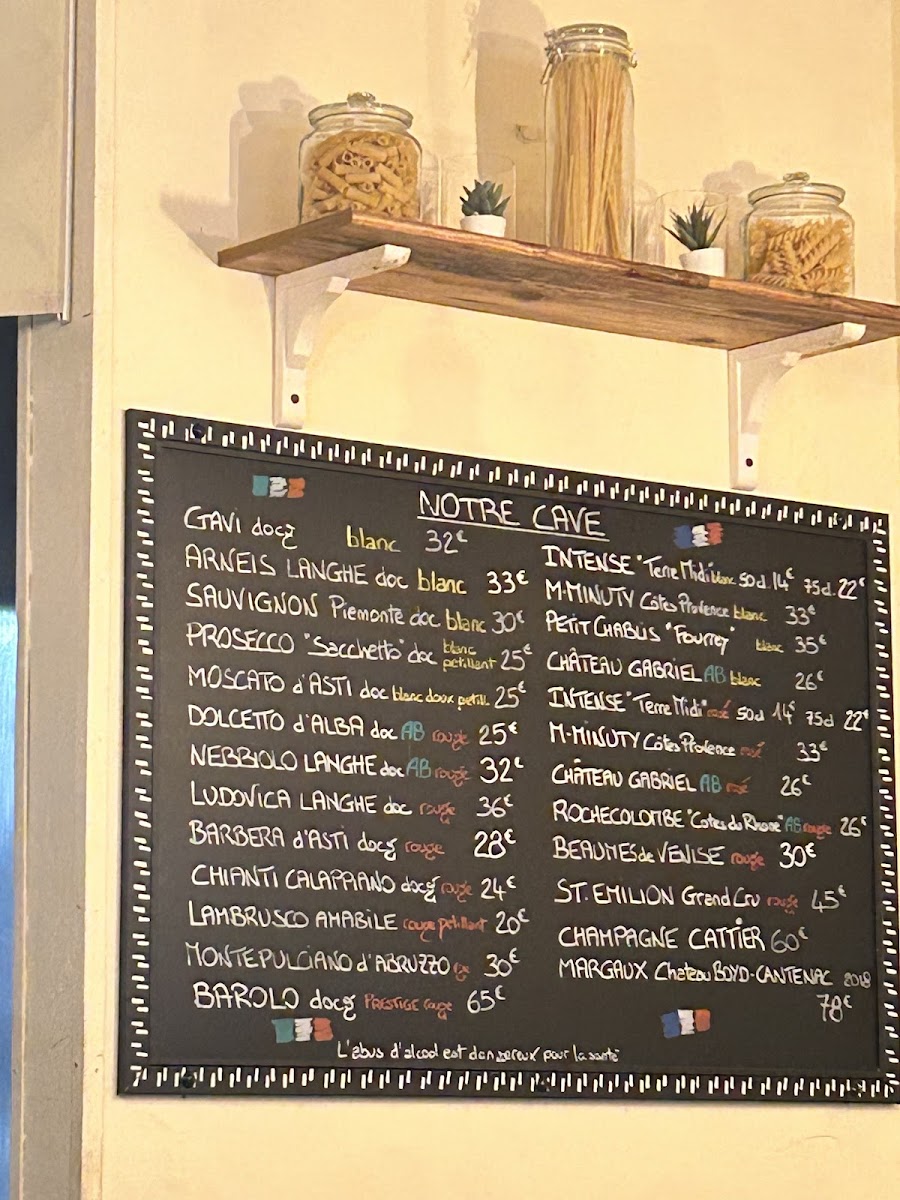 NOTRE CAVE
GAVI docg blanc 32€
ARNEIS LANGHE doc blanc 33€
SAUVIGNON Piemonte doc blanc 30€
PROSECCO "Sacchetto" doc blanc petillant 25€
MOSCATO d'ASTI doc blanc doux petill. 25€
DOLCETTO d'ALBA doc AB rouge 25€
NEBBIOLO LANGHE doc AB rouge 32€
LUDOVICA LANGHE doc rouge 36€
BARBERA d'ASTI docg rouge 28€
CHIANTI CALAPPIANO docg rouge 24€
LAMBRUSCO AMABILE rouge petillant 20€
MONTEPULCIANO d'ABRUZZO rge 30€
BAROLO docg PRESTIGE rouge 65€
INTENSE "Terre Midi" blanc 50cl 14€ 75cl 22€
M-MINUTY Côtes Provence blanc 33€
PETIT CHABLIS "Fourrey" blanc 35€
CHÂTEAU GABRIEL AB blanc 26€
INTENSE "Terre Midi" rosé 50cl 14€ 75cl 22€
M-MINUTY Côtes Provence rosé 33€
CHÂTEAU GABRIEL AB rosé 26€
ROCHECOLOMBE "Cotes du Rhone" AB rouge 26€
BEAUMES de VENISE rouge 30€
ST. EMILION Grand Cru rouge 45€
CHAMPAGNE CATTIER 60€
MARGAUX Chateau BOYD-CANTENAC 2018
78€
L'abus d'alcool est dangereux pour la santé